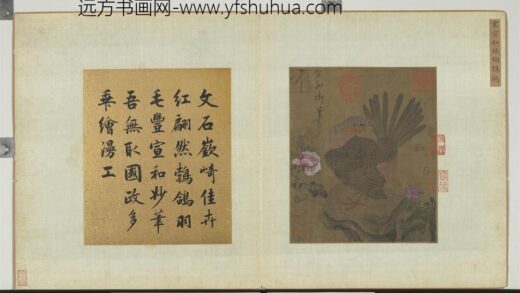 远方书画网- www.yfshuhua.com
宣和御筆
文石嶔崎佳卉
紅翩然鵓鴿羽
毛豐宣和妙筆
吾無取國政多
乖繪漫工